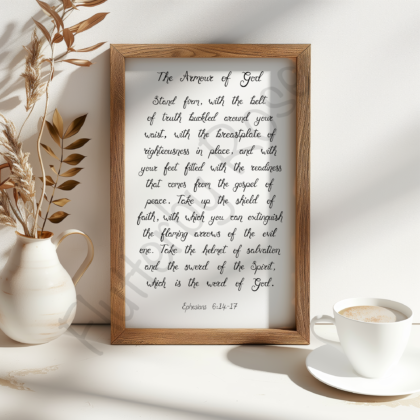 The Armour of God
Stand firm, with the belt
of truth buckled around your
waist, with the breastplate of
righteousness in place, and with
your feet fitted with the readiness
that comes from the gospel of
peace. Take up the shield of
faith, with which you can extinguish
the flaming arrows of the evil
one. Take the helmet of salvation
and the sword of the Spirit,
which is the word of God.
Ephesians 6:14-17